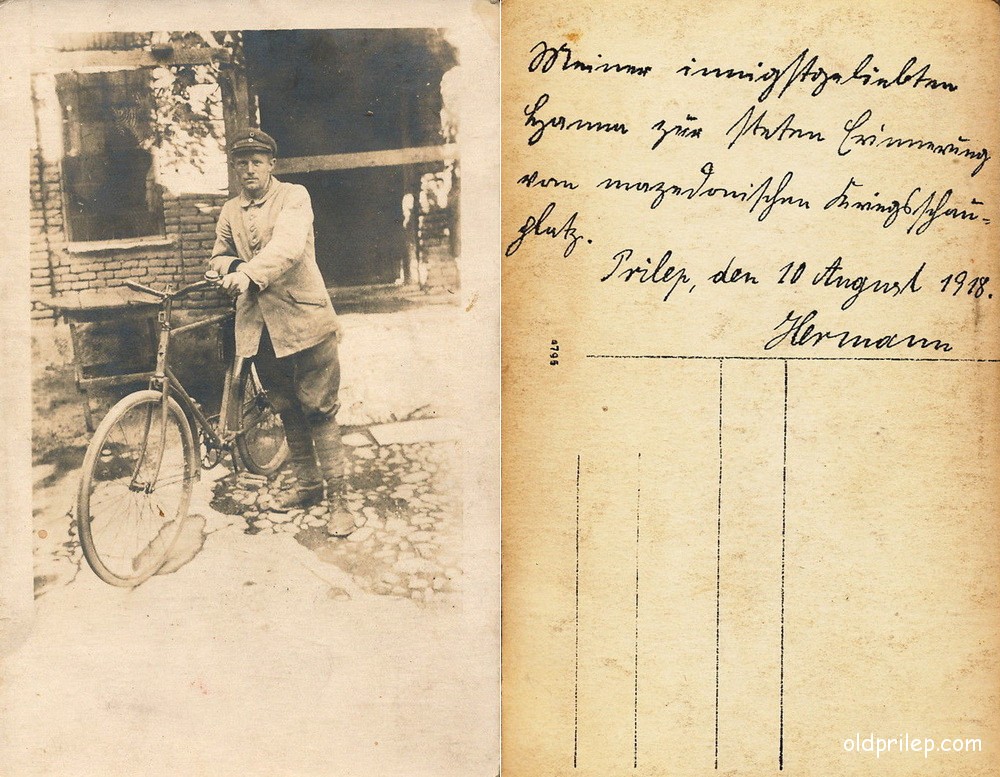 Meiner innigstgeliebten
Hanna zur steten Erinnerung
vom mazedonischen Kriegsschau-
platz.
Prilep, den 10 August 1918.
Hermann
oldprilep.com